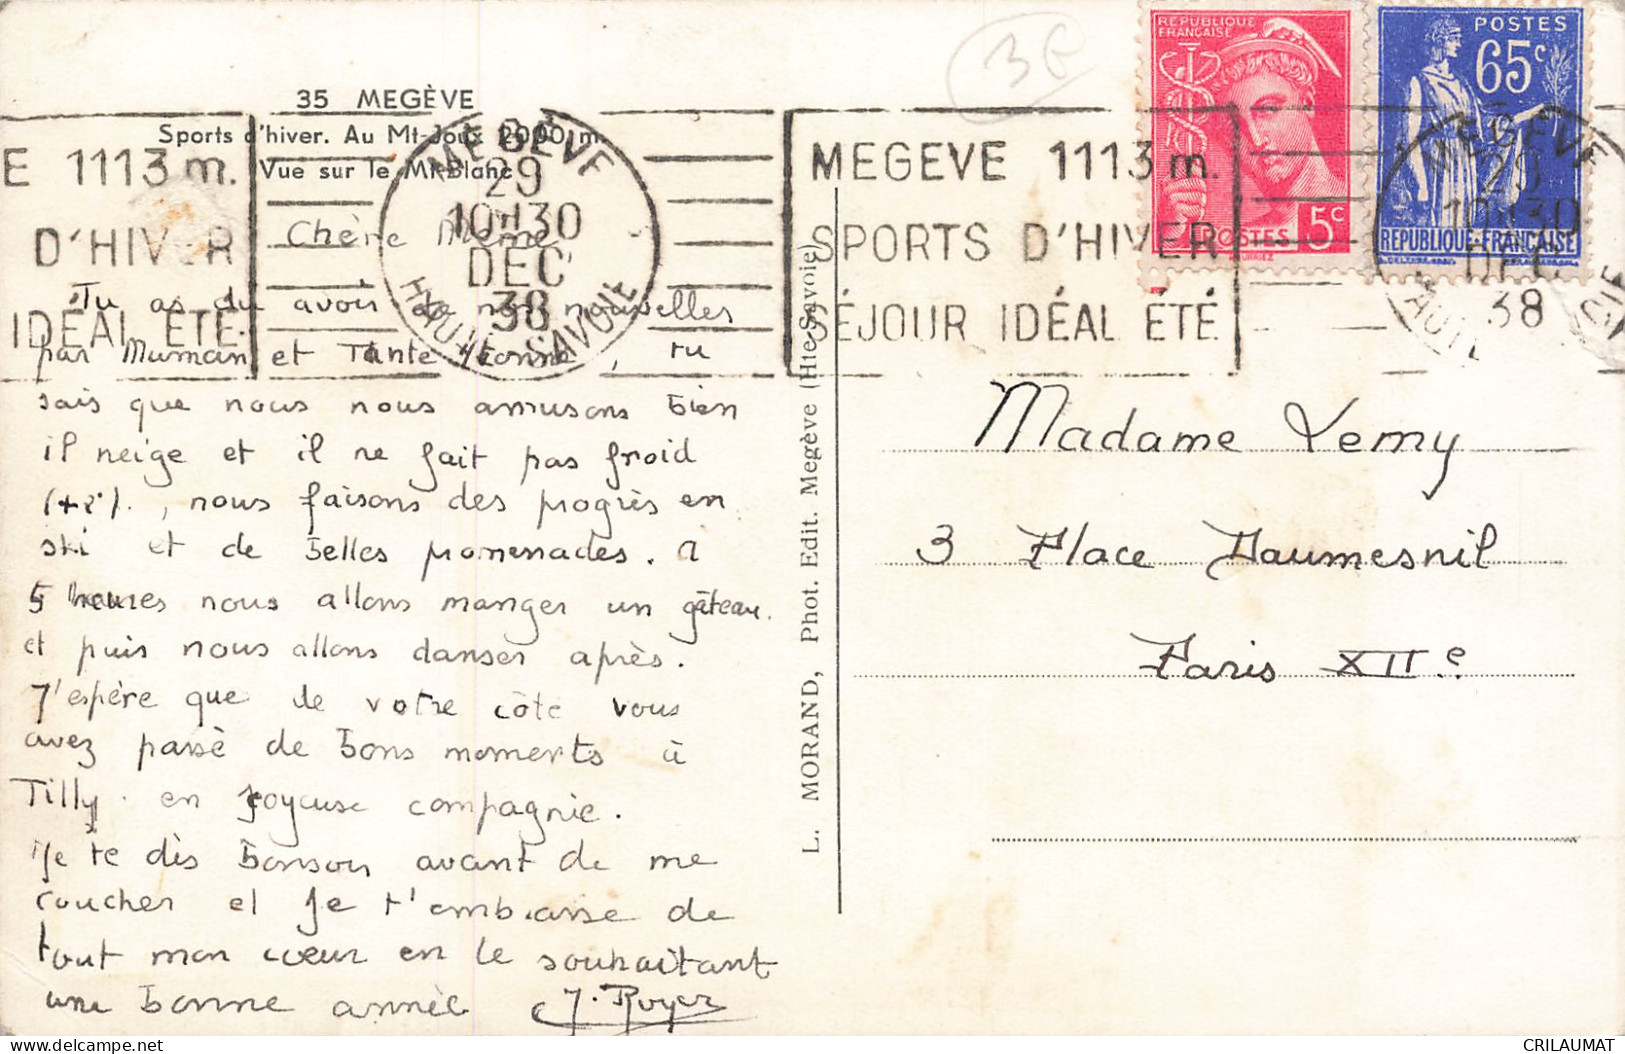 35 MEGÈVE
Sports d'hiver. Au Mt-Joux 2000 m.
Vue sur le Mt-Blanc
E 1113 m.
D'HIVER
IDÉAL ÉTÉ.
MEGÈVE
29
10H30
DEC
38
HAUTE-SAVOIE
MEGEVE 1113 m.
SPORTS D'HIVER
SÉJOUR IDÉAL ÉTÉ
3€
REPUBLIQUE
FRANÇAISE
5c
POSTES
POSTES
65c
REPUBLIQUE-FRANÇAISE
MEGÈVE
29
10H30
DEC
38
Chère Mémé
Tu as du avoir de nos nouvelles
par Maman et Tante Yvonne, tu
sais que nous nous amusons bien
il neige et il ne fait pas froid
(+2°)., nous faisons des progrès en
ski et de belles promenades. A
5 heures nous allons manger un gâteau.
et puis nous allons danser après.
J'espère que de votre côté vous
avez passé de bons moments à
Tilly en joyeuse compagnie.
Je te dis bonsoir avant de me
coucher et je t'embrasse de
tout mon cœur en te souhaitant
une bonne année J. Royer
L. MORAND, Phot. Edit. Megève (Hte-Savoie)
Madame Lemy
3 Place Daumesnil
Paris XIIe
CRILAUMAT